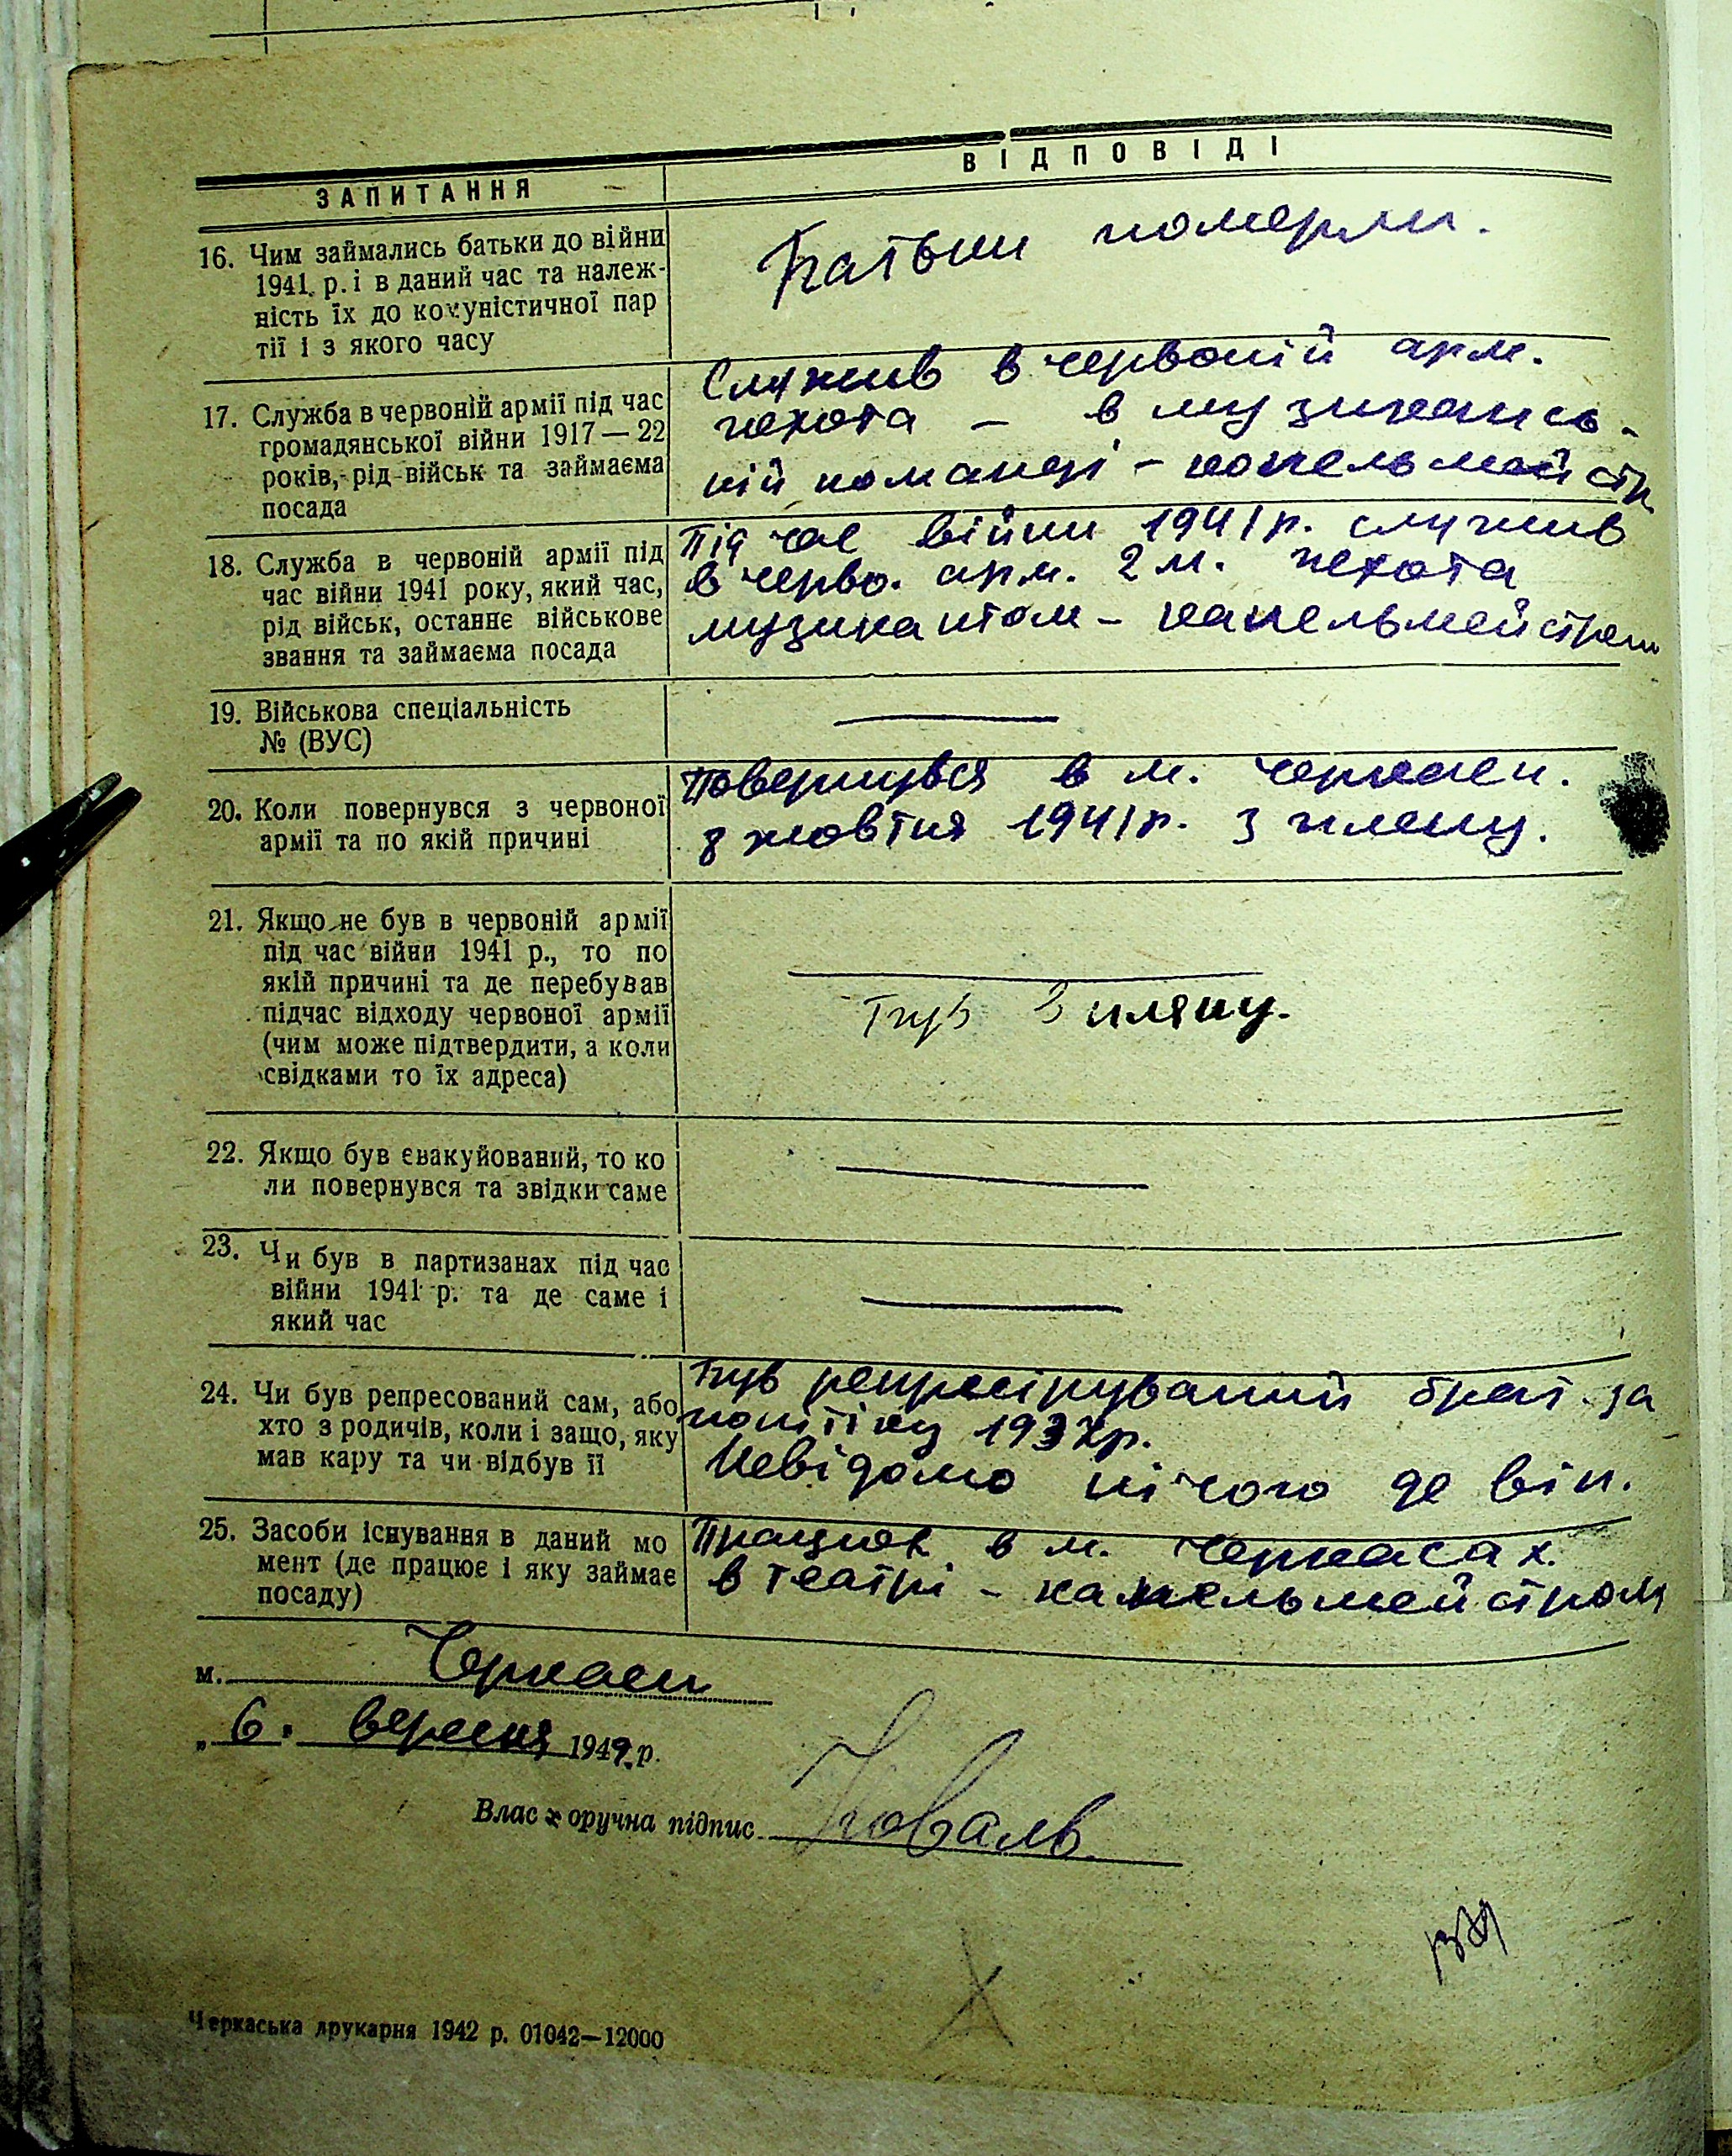 ЗАПИТАННЯ
ВІДПОВІДІ
16. Чим займались батьки до війни
1941. р. і в даний час та належ-
ність їх до комуністичної пар
тії і з якого часу
Батьки померли.
17. Служба в червоній армії під час
громадянської війни 1917—22
років, рід військ та займаєма
посада
Служив в червоній арм.
пехота – в музикансь-
кій команді – капельмейстр
18. Служба в червоній армії під
час війни 1941 року, який час,
рід військ, останнє військове
звання та займаєма посада
Під час війни 1941 р. служив
в черво. арм. 2 м. пехота
музикантом – капельмейстром
19. Військова спеціальність
№ (ВУС)
20. Коли повернувся з червоної
армії та по якій причині
Повернувся в м. Черкаси.
8 жовтня 1941 р. з плену.
21. Якщо не був в червоній армії
під час війни 1941 р., то по
якій причині та де перебував
підчас відходу червоної армії
(чим може підтвердити, а коли
свідками то їх адреса)
Був в пляну.
22. Якщо був євакуйований, то ко
ли повернувся та звідки саме
23. Чи був в партизанах під час
війни 1941 р. та де саме і
який час
24. Чи був репресований сам, або
хто з родичів, коли і защо, яку
мав кару та чи відбув її
Був репресірований брат за
політіку 1937р.
Невідомо нічого де він.
25. Засоби існування в даний мо
мент (де працює і яку займає
посаду)
Працюю в м. Черкасах.
в театрі – капельмейстром
м. Черкаси
„ 6. вересня 1942 р.
Власноручна підпис Коваль
Черкаська друкарня 1942 р. 01042—12000